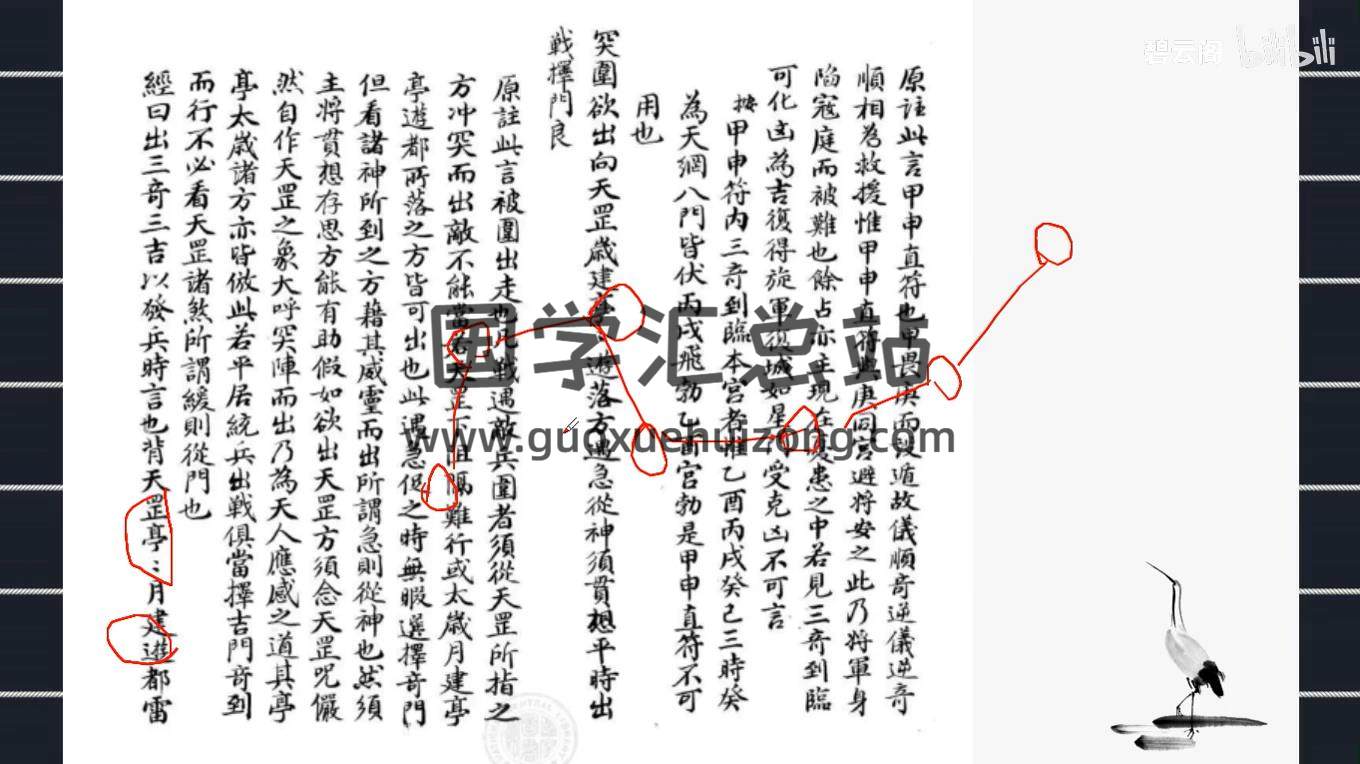 原註此言甲申直符也甲畏庚而設遁故儀順奇逆儀逆奇
順相為救援惟甲申直符與庚同宮避將安之此乃將軍身
陷寇庭而被難也餘占亦主現在憂患之中若見三奇到臨
可化凶為吉復得旋軍復城如星門受克凶不可言
按甲申符內三奇到臨本宮者惟乙酉丙戌癸巳三時癸
為天網八門皆伏丙戌飛勃乙酉宮勃是甲申直符不可
用也
突圍欲出向天罡歲建亭亭遊落方遇急從神須貫想平時出
戰擇門良
原註此言被圍出走也凡戰遇敵兵圍者須從天罡所指之
方冲突而出敵不能當若天罡下阻隔難行或太歲月建亭
亭遊都所落之方皆可出也此遇急促之時無暇選擇奇門
但看諸神所到之方藉其威靈而出所謂急則從神也然須
主將貫想存思方能有助假如欲出天罡方須念天罡咒儼
然自作天罡之象大呼突陣而出乃為天人應感之道其亭
亭太歲諸方亦皆倣此若平居統兵出戰俱當擇吉門奇到
而行不必看天罡諸煞所謂緩則從門也
經曰出三奇三吉以發兵時言也背天罡亭〻月建遊都雷
国学汇总站
www.guoxuehuizong.com
碧云阁 bilibili